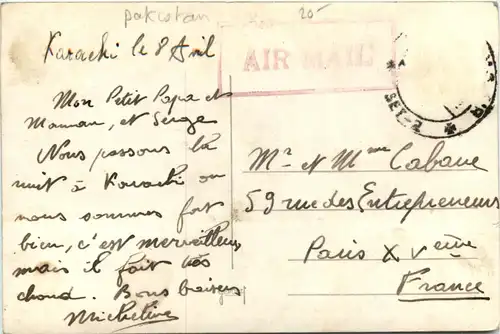 pakistan
20-
Karachi le 8 Avril
AIR MAIL
SET-2
Mon Petit Papa et
Maman, et Serge
Nous passons la
nuit à Karachi où
nous sommes fort
bien, c'est merveilleux
mais il fait très
chaud. Bons baisers
Micheline
Mr et Mme Cabane
59 rue des Entrepreneurs
Paris XVeme
France